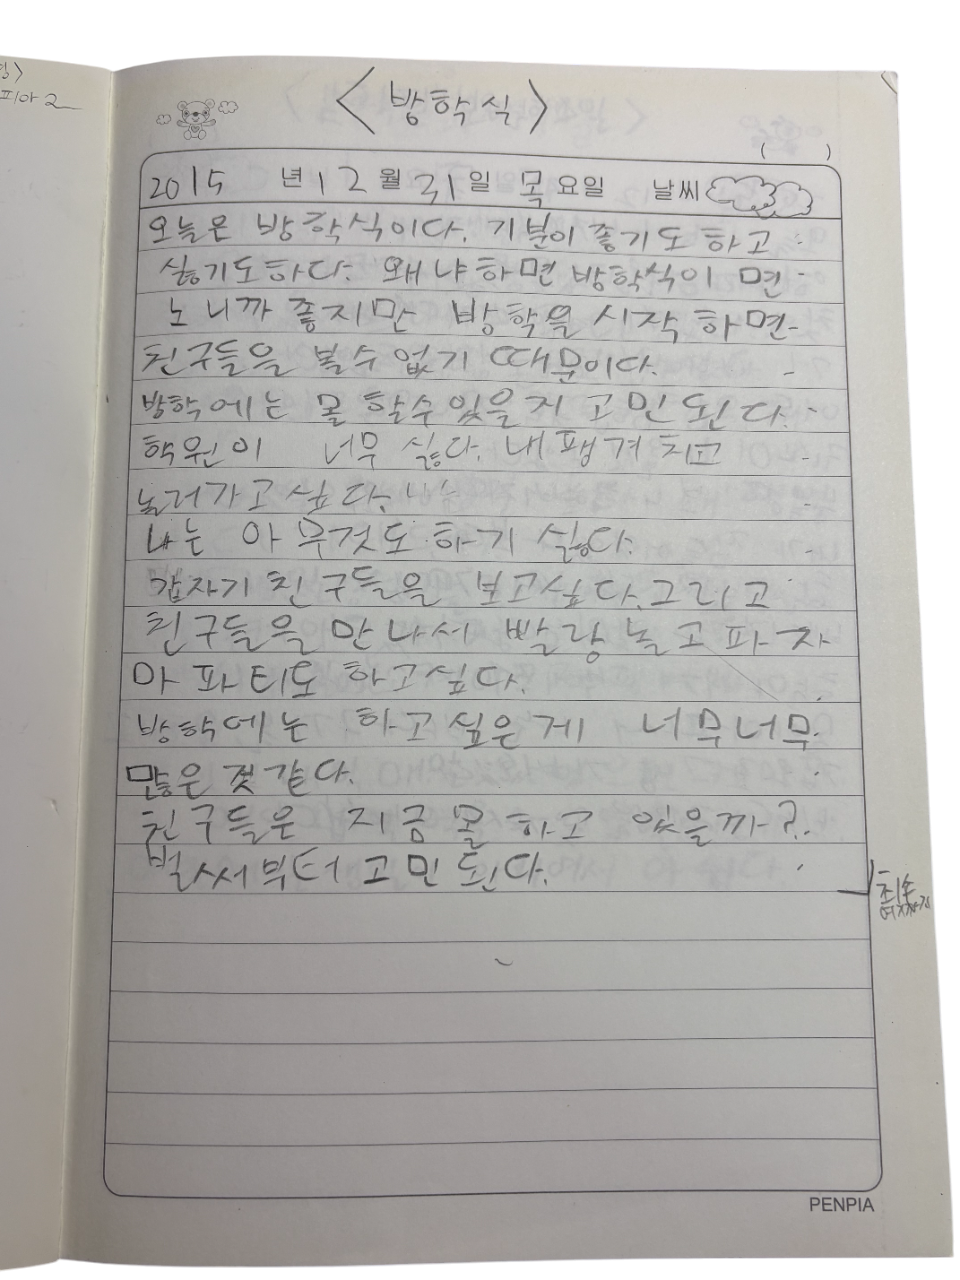 피아 2
<방학식>
( )
2015 년 12 월 31 일 목 요일 날씨
오늘은 방학식이다. 기분이 좋기도 하고
싫기도하다. 왜냐하면 방학식이 면
노니까 좋지만 방학을 시작 하면
친구들을 볼수 없기 때문이다.
방학에는 몰 할수있을지 고민 된다.
학원이 너무 싫다. 내팽겨 치고
놀러가고 싶다.
나는 아 무것도 하기 싫다.
갑자기 친구들을 보고싶다. 그리고
친구들을 만나서 빨랑 놀고 파자
마 파티도 하고싶다.
방학에는 하고 싶은 게 너무너무
많은 것 같다.
친구들은 지금 몰 하고 있을까?
벌써부터 고민 된다.
최소
여기까지
PENPIA